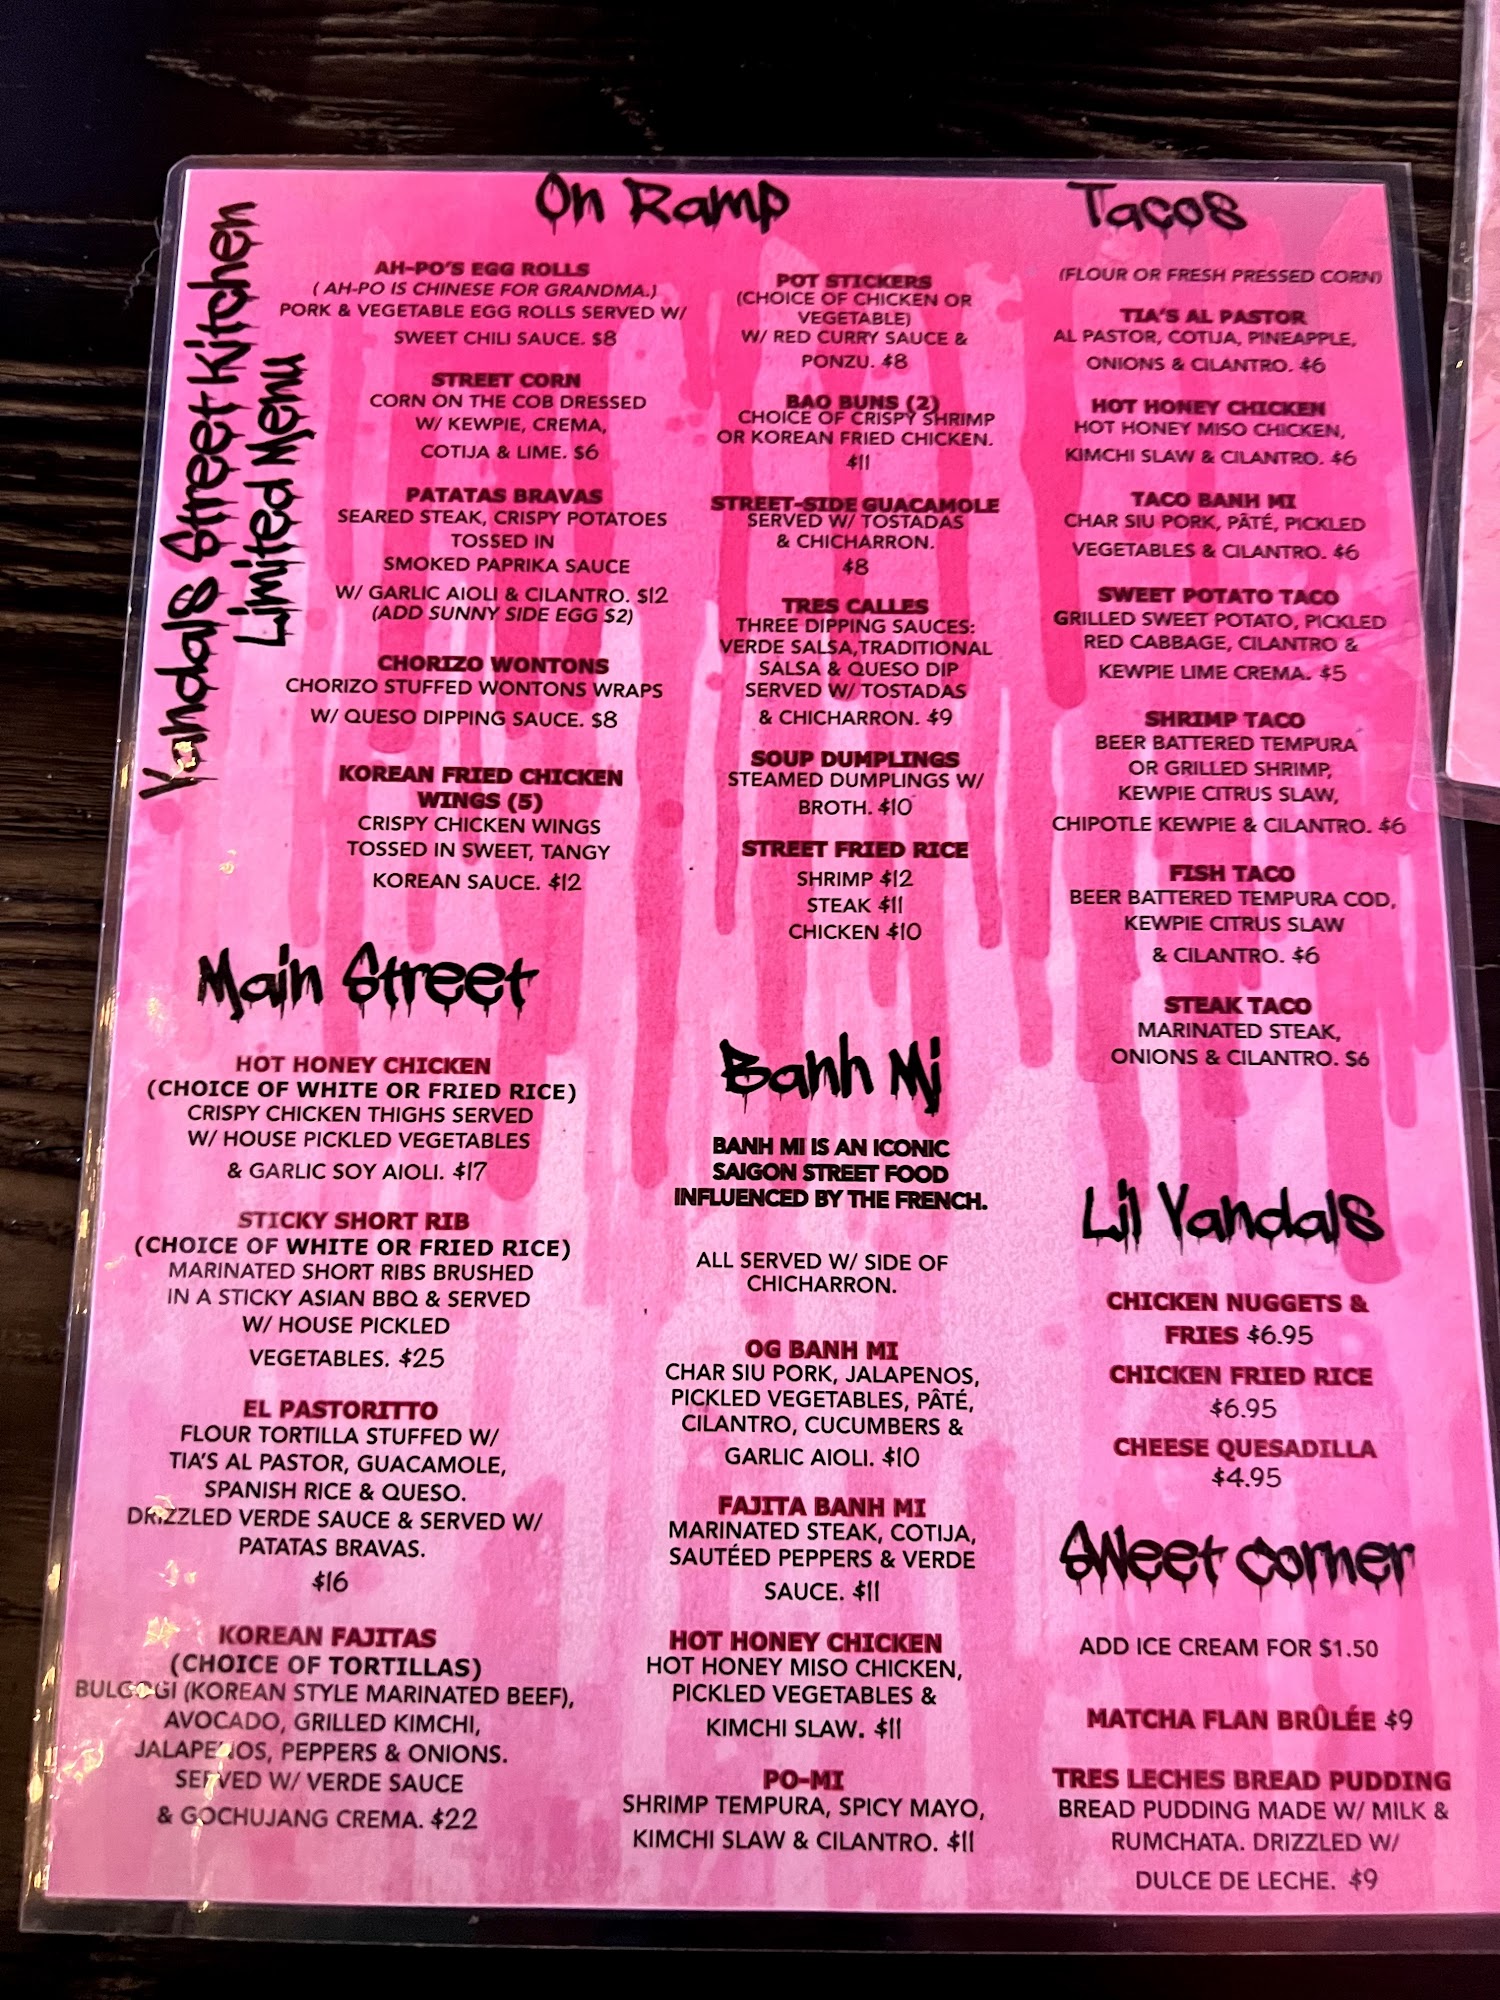 Vandals Street Kitchen
Limited Menu
On Ramp
AH-PO'S EGG ROLLS
( AH-PO IS CHINESE FOR GRANDMA.)
PORK & VEGETABLE EGG ROLLS SERVED W/
SWEET CHILI SAUCE. $8
STREET CORN
CORN ON THE COB DRESSED
W/ KEWPIE, CREMA,
COTIJA & LIME. $6
PATATAS BRAVAS
SEARED STEAK, CRISPY POTATOES
TOSSED IN
SMOKED PAPRIKA SAUCE
W/ GARLIC AIOLI & CILANTRO. $12
(ADD SUNNY SIDE EGG $2)
CHORIZO WONTONS
CHORIZO STUFFED WONTONS WRAPS
W/ QUESO DIPPING SAUCE. $8
KOREAN FRIED CHICKEN
WINGS (5)
CRISPY CHICKEN WINGS
TOSSED IN SWEET, TANGY
KOREAN SAUCE. $12
POT STICKERS
(CHOICE OF CHICKEN OR
VEGETABLE)
W/ RED CURRY SAUCE &
PONZU. $8
BAO BUNS (2)
CHOICE OF CRISPY SHRIMP
OR KOREAN FRIED CHICKEN.
$11
STREET-SIDE GUACAMOLE
SERVED W/ TOSTADAS
& CHICHARRON.
$8
TRES CALLES
THREE DIPPING SAUCES:
VERDE SALSA,TRADITIONAL
SALSA & QUESO DIP
SERVED W/ TOSTADAS
& CHICHARRON. $9
SOUP DUMPLINGS
STEAMED DUMPLINGS W/
BROTH. $10
STREET FRIED RICE
SHRIMP $12
STEAK $11
CHICKEN $10
Tacos
(FLOUR OR FRESH PRESSED CORN)
TIA'S AL PASTOR
AL PASTOR, COTIJA, PINEAPPLE,
ONIONS & CILANTRO. $6
HOT HONEY CHICKEN
HOT HONEY MISO CHICKEN,
KIMCHI SLAW & CILANTRO. $6
TACO BANH MI
CHAR SIU PORK, PÂTÉ, PICKLED
VEGETABLES & CILANTRO. $6
SWEET POTATO TACO
GRILLED SWEET POTATO, PICKLED
RED CABBAGE, CILANTRO &
KEWPIE LIME CREMA. $5
SHRIMP TACO
BEER BATTERED TEMPURA
OR GRILLED SHRIMP,
KEWPIE CITRUS SLAW,
CHIPOTLE KEWPIE & CILANTRO. $6
FISH TACO
BEER BATTERED TEMPURA COD,
KEWPIE CITRUS SLAW
& CILANTRO. $6
STEAK TACO
MARINATED STEAK,
ONIONS & CILANTRO. $6
Main Street
HOT HONEY CHICKEN
(CHOICE OF WHITE OR FRIED RICE)
CRISPY CHICKEN THIGHS SERVED
W/ HOUSE PICKLED VEGETABLES
& GARLIC SOY AIOLI. $17
STICKY SHORT RIB
(CHOICE OF WHITE OR FRIED RICE)
MARINATED SHORT RIBS BRUSHED
IN A STICKY ASIAN BBQ & SERVED
W/ HOUSE PICKLED
VEGETABLES. $25
EL PASTORITTO
FLOUR TORTILLA STUFFED W/
TIA'S AL PASTOR, GUACAMOLE,
SPANISH RICE & QUESO.
DRIZZLED VERDE SAUCE & SERVED W/
PATATAS BRAVAS.
$16
KOREAN FAJITAS
(CHOICE OF TORTILLAS)
BULGOGI (KOREAN STYLE MARINATED BEEF),
AVOCADO, GRILLED KIMCHI,
JALAPENOS, PEPPERS & ONIONS.
SERVED W/ VERDE SAUCE
& GOCHUJANG CREMA. $22
Banh Mi
BANH MI IS AN ICONIC
SAIGON STREET FOOD
INFLUENCED BY THE FRENCH.
ALL SERVED W/ SIDE OF
CHICHARRON.
OG BANH MI
CHAR SIU PORK, JALAPENOS,
PICKLED VEGETABLES, PÂTÉ,
CILANTRO, CUCUMBERS &
GARLIC AIOLI. $10
FAJITA BANH MI
MARINATED STEAK, COTIJA,
SAUTÉED PEPPERS & VERDE
SAUCE. $11
HOT HONEY CHICKEN
HOT HONEY MISO CHICKEN,
PICKLED VEGETABLES &
KIMCHI SLAW. $11
PO-MI
SHRIMP TEMPURA, SPICY MAYO,
KIMCHI SLAW & CILANTRO. $11
Lil Vandals
CHICKEN NUGGETS &
FRIES $6.95
CHICKEN FRIED RICE
$6.95
CHEESE QUESADILLA
$4.95
Sweet Corner
ADD ICE CREAM FOR $1.50
MATCHA FLAN BRÛLÉE $9
TRES LECHES BREAD PUDDING
BREAD PUDDING MADE W/ MILK &
RUMCHATA. DRIZZLED W/
DULCE DE LECHE. $9